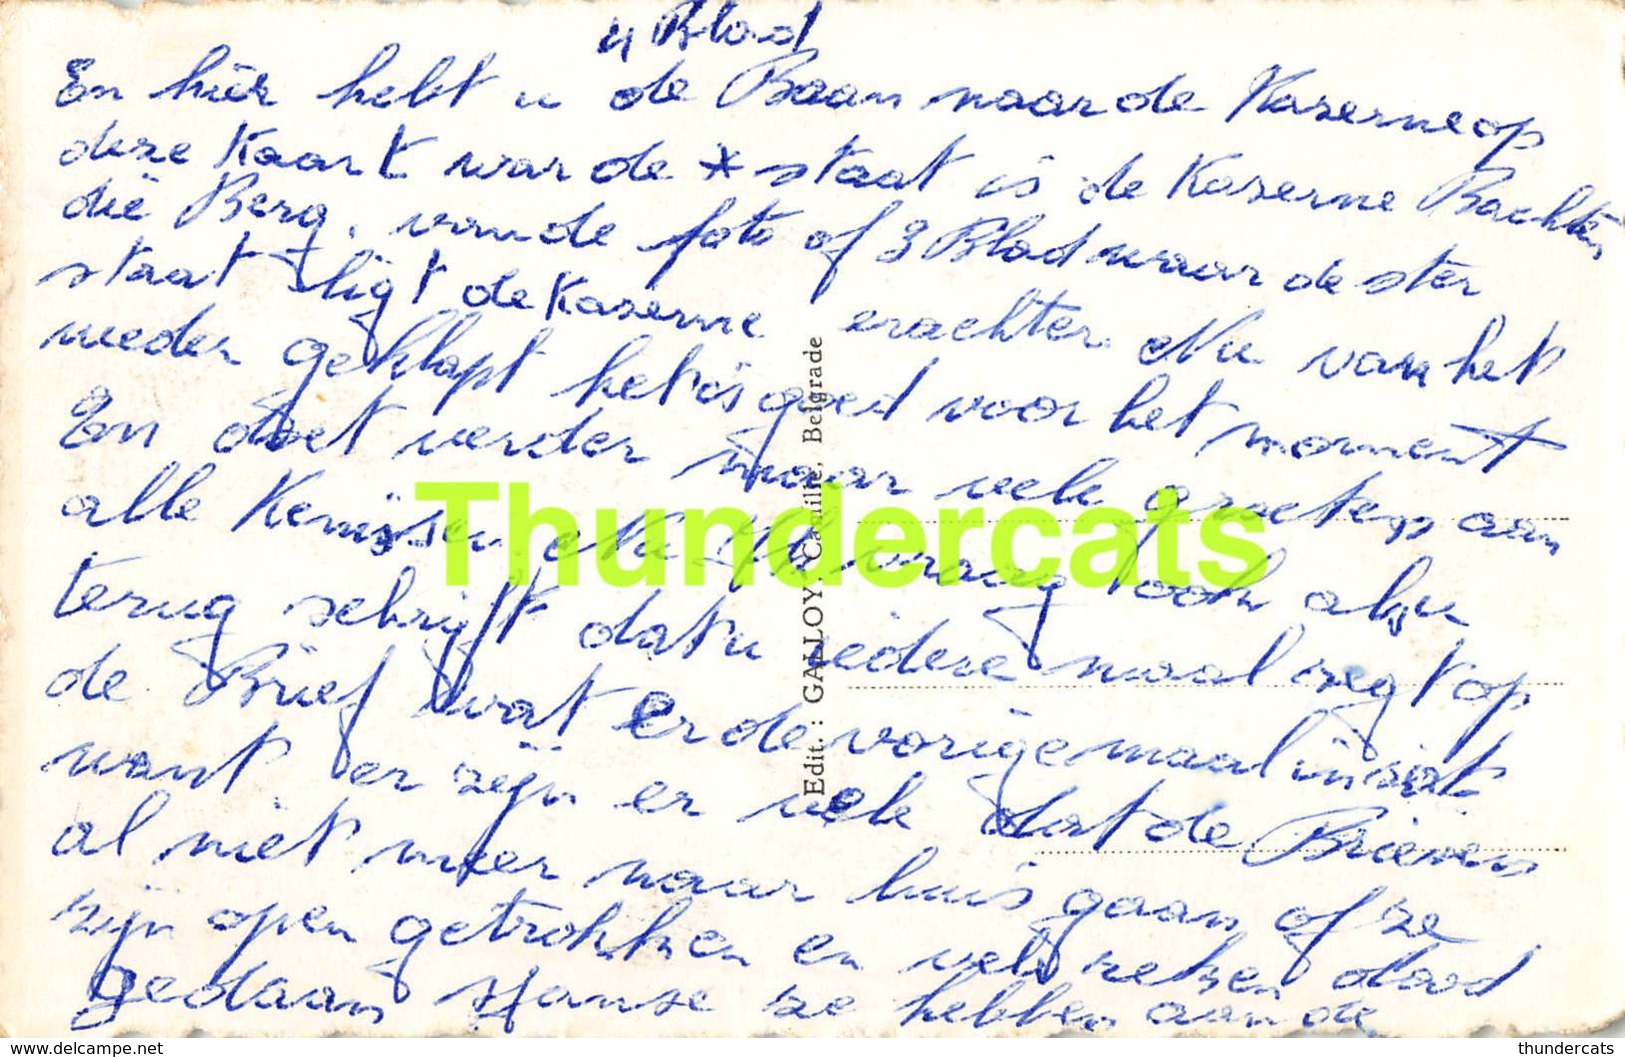 4 Blad
En hier hebt u de Baan naar de Kaserne op
deze Kaart waar de * staat is de Kaserne Bachten
die Berg. van de foto of 3 Blad waar de ster
staat ligt de Kaserne erachter. Nu van het
neder geklapt het is goed voor het moment
En doet verder maar vele groeten aan
alle Kenissen. Nu ik vraag ook als u
terug schrijft dat u iedere maal zegt op
de Brief wat er de vorige maal in zat
want er zijn er vele dat de Brieven
al niet meer naar huis gaan of ze
zijn open getrokken en vele zeken dood
gedaan ze hebben aan de
Edit. : GALLOY, Camille, Belgrade
Thundercats
thundercats.com
thundercats